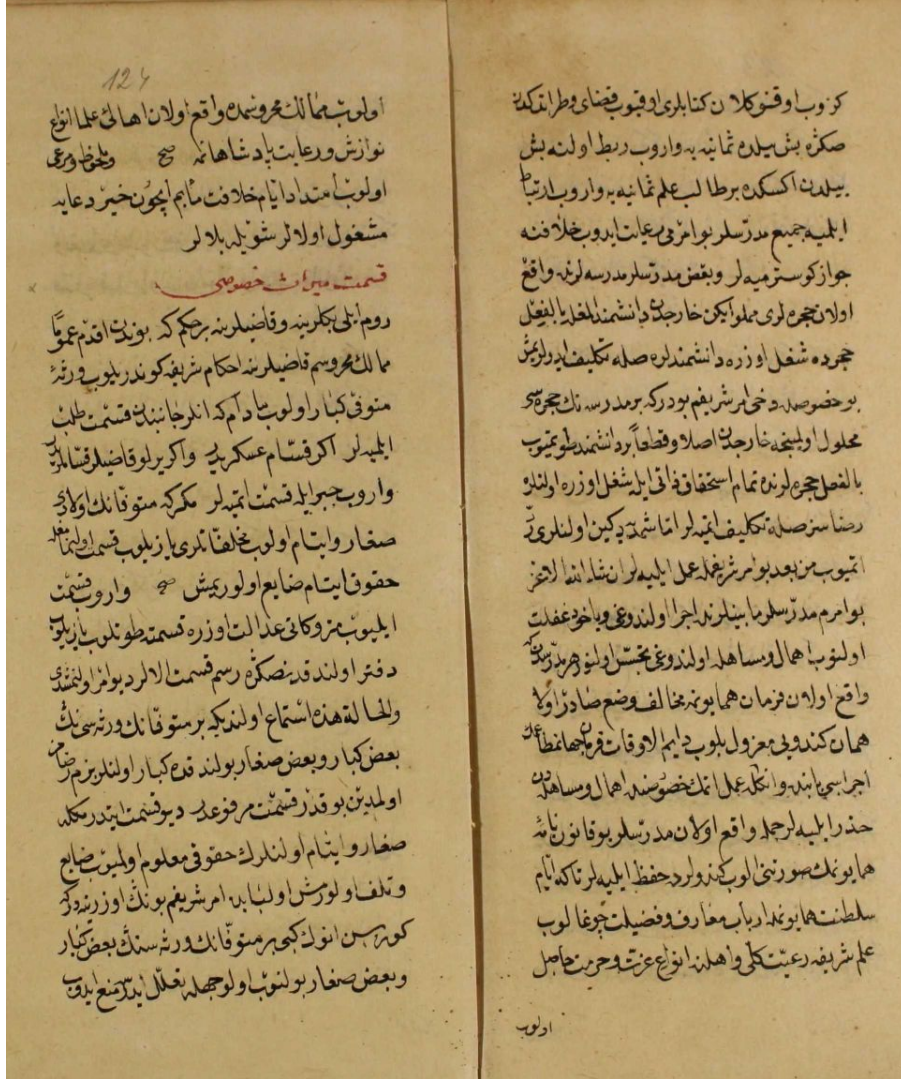 كزوب اوقنو كلان كتابلرى اوقيوب قضاى وطر ايتدكدن
صكره بش ييلده ثمانيه يه واروب ربط اولنه بش
ييلدن اكسكده بر طالب علم ثمانيه يه واروب ارتباط
ايلميه جميع مدرسلر بو امرمى رعايت ايدوب خلافنه
جواز كوسترميه لر و بعض مدرسلر مدرسه لرنده واقع
اولان حجره لرى مملو ايكن خارجدن دانشمند المغله بالفعل
حجره ده شغل اوزره دانشمندلره صله تكليف ايدرلرمش
بو خصوصده دخى امر شريفم بودركه بر مدرسه نك حجره سى
محلول اولمينجه خارجدن اصلا و قطعا بر دانشمند طوتميوب
بالفعل حجره لرنده تمام استحقاق ذاتى ايله شغل اوزره اولنلره
رضاسز صله تكليف ايتميه لر اما شمديه دكين اولنلرى رد
ايتميوب من بعد بو امر شريفمله عمل ايليه لر ان شاء الله الاعز
بو امرم مدرسلر مابينلرنده اجرا اولندوغى وياخود غفلت
اولنوب اهمال و مساهله اولندوغى تجسس اولنور هر مدرسدن كه
واقع اولان فرمان همايونمه مخالف وضع صادر اولا
همان كندويى معزول بلوب دايم الاوقات فرمان جهانمطاعك
اجراسى بابنده وانكله عمل اتمك خصوصنده اهمال و مساهله دن
حذر ايليه لر جمله واقع اولان مدرسلر بو قانون نامه
همايونمك صورتنى الوب كندولرده حفظ ايليه لر تا كه ايام
سلطنت همايونمده ارباب معارف و فضيلت چوغالوب
علم شريفه رعيت كلى و اهلنه انواع عزت و حرمت حاصل
اولوب
124
اولوب ممالك محروسه مده واقع اولان اهالئ علما انواع
نوازش و رعايت پادشاهانه مه صح و ملحوظ و مرعى
اولوب امتداد ايام خلافت مآبم ايچون خير دعايه
مشغول اولالر شويله بلالر
قسمت ميراث خصوصى
روم ايلى بكلرينه و قاضيلرينه بر حكم كه بوندن اقدم عموما
ممالك محروسم قاضيلرينه احكام شريفه كوندريلوب ورثۀ
متوفى كبار اولوب مادام كه انلر جانبندن قسمت طلب
ايلميه لر اكر قسام عسكريدر و اكر يرلو قاضيلر قساملريدر
واروب جبر ايله قسمت ايتميه لر مكر كه متوفانك اولادى
صغار و ايتام اولوب مخلفاتلرى يازيلوب قسمت اولنمامغله
حقوق ايتام ضايع اولوريمش صح واروب قسمت
ايليوب متروكاتى عدالت اوزره قسمته طوتلوب يازيلوب
دفتر اولندقدنصكره رسم قسمت الالر ديو امر اولنمشدى
والحالة هذه استماع اولنديكه بر متوفانك ورثه سى نك
بعض كبار و بعض صغار بولندقده كبار اولنلر بزم رضامز
اولمدين بو قدر قسمت مرفوعدر ديو قسمت ايتدرمكله
صغار و ايتام اولنلرك حقوقى معلوم اولميوب ضايع
و تلف اولورمش اول بابده امر شريفم بونك اوزرينه در كه
كوره سن انوك كبى بر متوفانك ورثه سنك بعض كبار
و بعض صغار بولنوب اولوجهله تعلل ايدر منع ايدوب